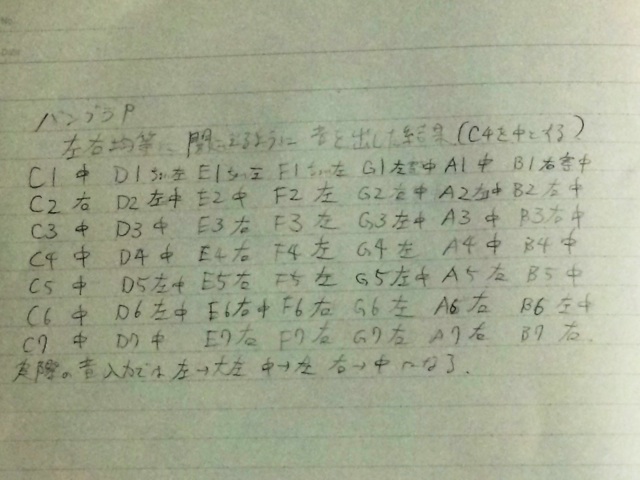 バンブラP
左右均等に聞こえるように音を出した結果(C4を中とする)
C1 中 D1 左 E1 左 F1 左 G1 左中 A1 中 B1 右中
C2 右 D2 左中 E2 中 F2 左 G2 左中 A2 左中 B2 左中
C3 中 D3 中 E3 右 F3 左 G3 左中 A3 中 B3 右中
C4 中 D4 中 E4 右 F4 左 G4 左 A4 中 B4 中
C5 中 D5 左中 E5 右 F5 左 G5 左中 A5 左 B5 中
C6 中 D6 左中 E6 右中 F6 右 G6 左 A6 右 B6 左中
C7 中 D7 中 E7 右 F7 右 G7 右 A7 右 B7 右
実際の音入力では左→大左 中→左 右→中になる.